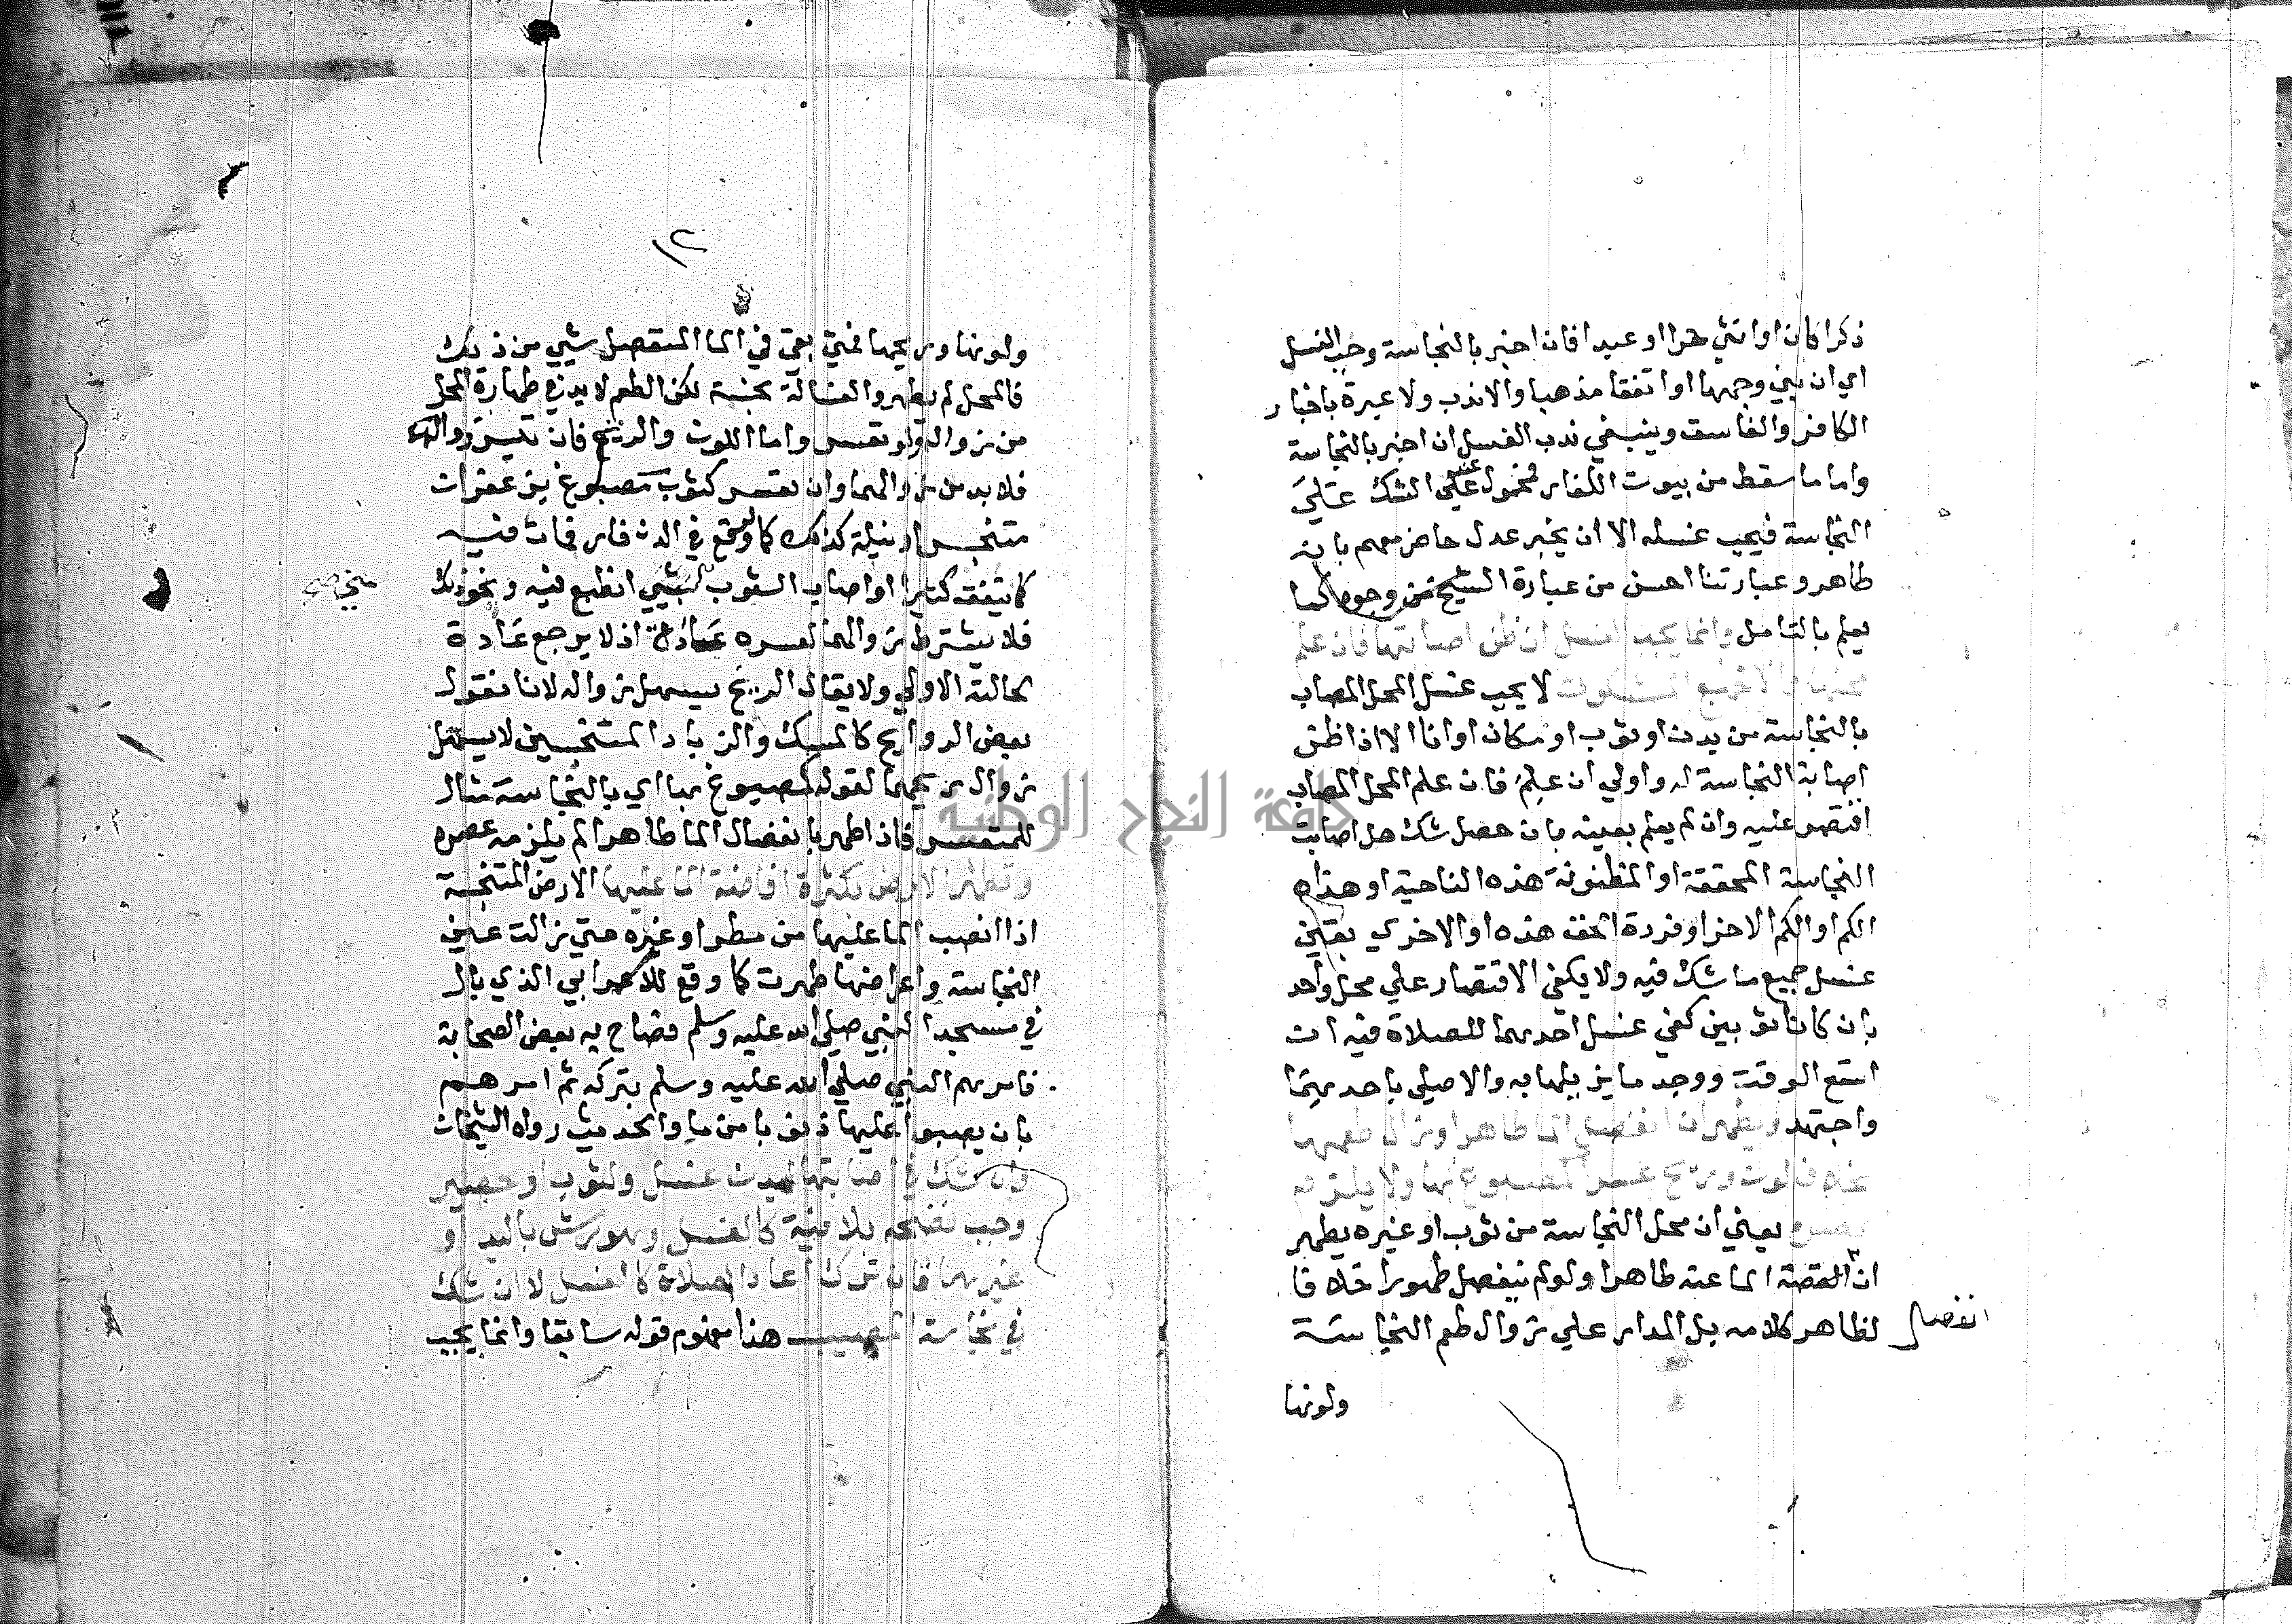 ذكرا كان او انثي حرا او عبدا فان اخبر بالنجاسة وجب الغسل
اي ان بين وجهها او اتفقا مذهبا والا ندب ولا عبرة باخبار
الكافر والفاسق وينبغي ندب الغسل ان اخبر بالنجاسة
واما ما سقط من بيوت الكفار فمحمول علي الشك علي
النجاسة فيجب غسله الا ان يخبر عدل حاضر معهم بانه
طاهر وعبارتنا احسن من عبارة الشيخ من وجوه كما
يعلم بالتامل وانما يجب الغسل ان ظن اصابتها فان علم
محلها والا فجميع المشكوك لا يجب غسل المحل المصاب
بالنجاسة من بدن او ثوب او مكان او انا الا اذا ظن
اصابة النجاسة له واولي ان علم فان علم المحل المصاب
اقتصر عليه وان لم يعلم بعينه بان حصل شك هل اصابت
النجاسة المحققة او المظنونة هذه الناحية او هذا
الكم او الكم الاخر او فردة الخف هذه او الاخري تعين
غسل جميع ما شك فيه ولا يكفي الاقتصار علي محل واحد
بان كانا ثوبين كفي غسل احدهما للصلاة فيه ان
اتسع الوقت ووجد ما يزيلها به والا صلي باحدهما
واجتهد ويطهر ان انفصل الما طاهرا وزال طعمها
بخلاف لون وريح عسر المصبوغ بها ولا يلزم
يعني ان محل النجاسة من ثوب او غيره يطهر
ان انفصل الما عنه طاهرا ولو لم ينفصل طهورا خلافا
لظاهر كلامه بل المدار علي زوال طعم النجاسة
انفصل
ولونها
١٢
ولونها وريحها فمتي بقي في الما المنفصل شيي من ذلك
فالمحل لم يطهر والغسالة نجسة لكن الطعم لابد في طهارة المحل
من زواله ولو تعسر واما اللون والريح فان تيسر زوالهما
فلا بد من زوالهما وان تعسر كثوب مصبوغ بزعفران
متنجس او نيلة كذلك كما لو وقع في الدن فار فمات فيه
كما يتفق كثيرا او اصاب الثوب شيي انطبع فيه ونحو ذلك
فلا يشترط زوالهما لعسره عادة اذ لا يرجع عادة
لحالته الاولي ولا يقال الريح يسهل زواله لانا نقول
بعض الروايح كالمسك والزباد المتنجسين لا يسهل
زوال ريحهما لقوله كمصبوغ بها اي بالنجاسة مثال
للمتعسر فاذا طهر بانفصال الما طاهرا لم يلزمه عصره
وتطهر الارض بكثرة افاضة الما عليها الارض المتنجسة
اذا انصب الما عليها من مطر او غيره حتي زالت عين
النجاسة واعراضها طهرت كما وقع للاعرابي الذي بال
في مسجد النبي صلي الله عليه وسلم فصاح به بعض الصحابة
فامرهم النبي صلي الله عليه وسلم بتركه ثم امرهم
بان يصبوا عليها ذنوبا من ما والحديث رواه الشيخان
وان شك في اصابتها لبدن غسل ولثوب او حصير
وجب نضحه بلا نية كالغسل وهو رش باليد او
غيرها فان ترك اعاد الصلاة كالغسل لا ان شك
في نجاسة المصيب هذا مفهوم قوله سابقا وانما يجب